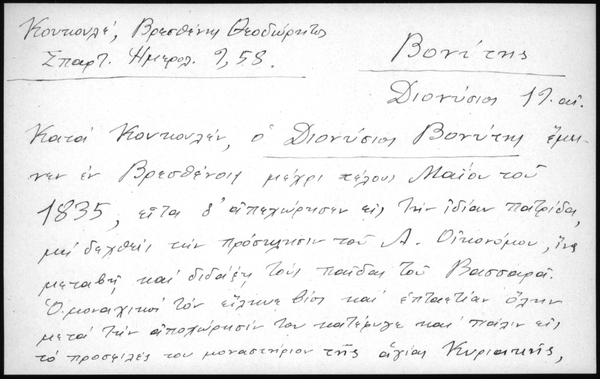 Κουκουλέ, Βρεσθένης Θεοδώρητος
Σπαρτ. Ημερολ. 9, 58.
Βονίτης
Διονύσιος 19. αἰ.
Κατά Κουκουλέν, ὁ Διονύσιος Βονίτης ἔμει-
νεν ἐν Βρεσθένοις μέχρι τέλους Μαΐου τοῦ
1835, εἶτα δ' ἀπεχώρησεν εἰς τήν ἰδίαν πατρίδα,
μή δεχθείς τήν πρόσκλησιν τοῦ Α. Οἰκονόμου, ἵνα
μεταβῇ καί διδάξῃ τούς παῖδας τοῦ Βασσαρᾶ.
Ὁ μοναχικός τόν εἵλκυε βίος καί ἑπταετίαν ὅλην
μετά τήν ἀποχώρησίν του κατέφυγε καί πάλιν εἰς
τό προσφιλές του μοναστήριον τῆς ἁγίας Κυριακῆς,